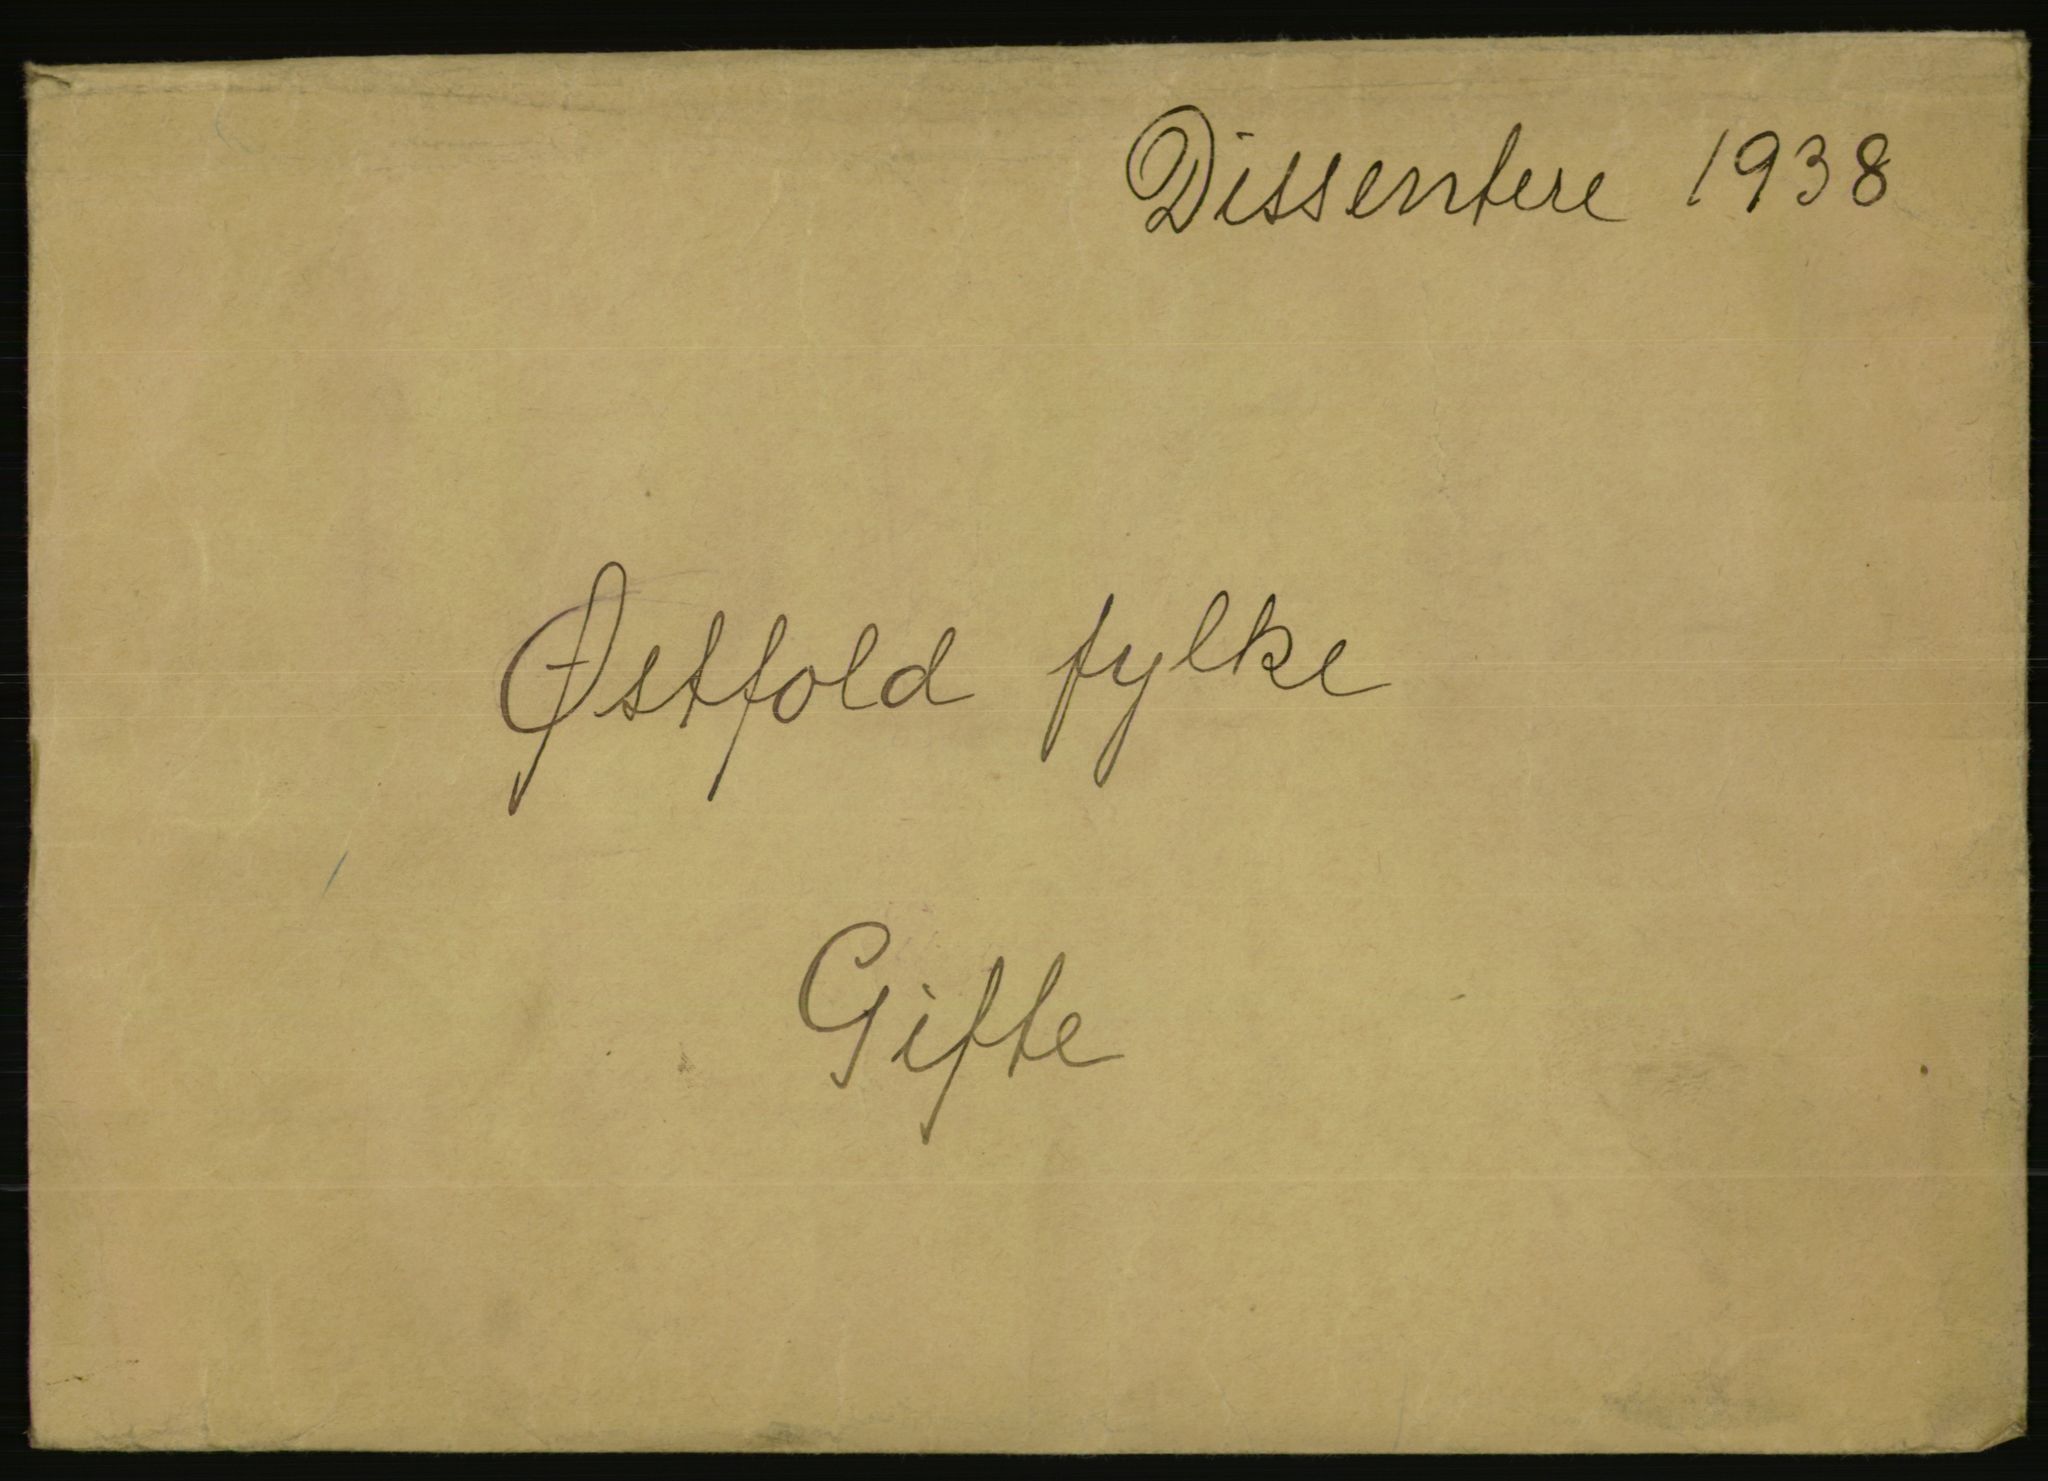 Dissentere 1938
Østfold fylke
Gifte